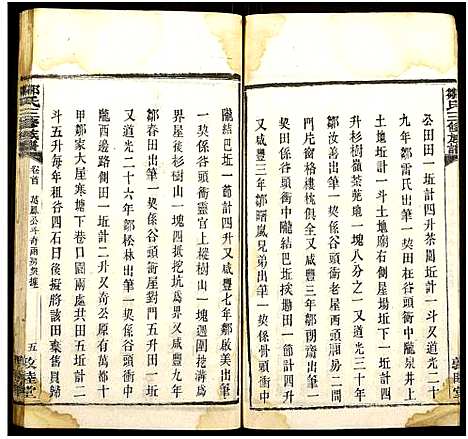 鄒氏三修族譜
公田田一坵計四升茶園坵計一斗又道光二十
九年鄒雷氏出筆一契田柱谷頭衝隴泉井上
土地坵計一斗土地廟右側屋場坵下一坵計四
升杉樹嶺荒地一塊八分之一又道光三十年
鄒汝善出筆一契係谷頭衝老屋西頭正屋一間
門片窗格樓栿俱全又咸豐三年鄒朗齋出筆一
契係谷頭衝中隴結巴坵一坵計四升
又咸豐三年鄒曙嵐兄弟出筆一契係骨頭衝中
隴結巴坵一坵計四升又咸豐七年鄒啟美出筆
一契係谷頭衝靈官上樅樹山一塊週圍挖溝爲
界又屋後杉樹山一塊四抵挖坑爲界又咸豐九年
鄒春田出筆一契係谷頭衝崖對門五升坵一
坵又道光二十六年鄒松林出筆一契係谷頭衝
隴西邊路側田一坵計二升又奇公原有萬都十
甲鄒家大屋寒塘下巷口園兩處共田五坵計二
斗五升每年租谷四石日後擬將該田棄售員歸
鄒氏三修族譜
卷首
萬鳳公斗奇兩房祭壇
五
敦睦堂